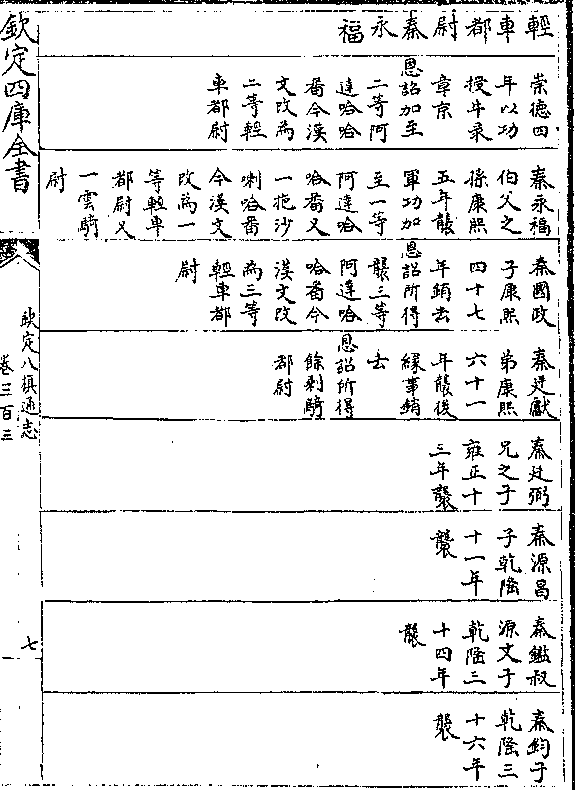 輕車都尉秦永福
崇德四
年以功
授牛录
章京
恩詔加至
二等阿
達哈哈
番今漢
文改為
二等輕
車都尉
秦永福
伯父之
孫康熙
五年襲
軍功加
至一等
阿達哈
哈番又
一拖沙
喇哈番
今漢文
改為一
等輕車
都尉又
一雲騎
尉
秦國政
子康熙
四十七
年銷去
恩詔所得
襲三等
阿達哈
哈番今
漢文改
為三等
輕車都
尉
秦廷獻
弟康熙
六十一
年襲後
緣事銷
去
恩詔所得
餘剩騎
都尉
秦廷弼
兄之子
雍正十
三年襲
秦源昌
子乾隆
十一年
襲
秦鑑叔
源文子
乾隆三
十四年
襲
秦鈞子
乾隆三
十六年
襲
欽定四庫全書
欽定八旗通志
卷三百三
七